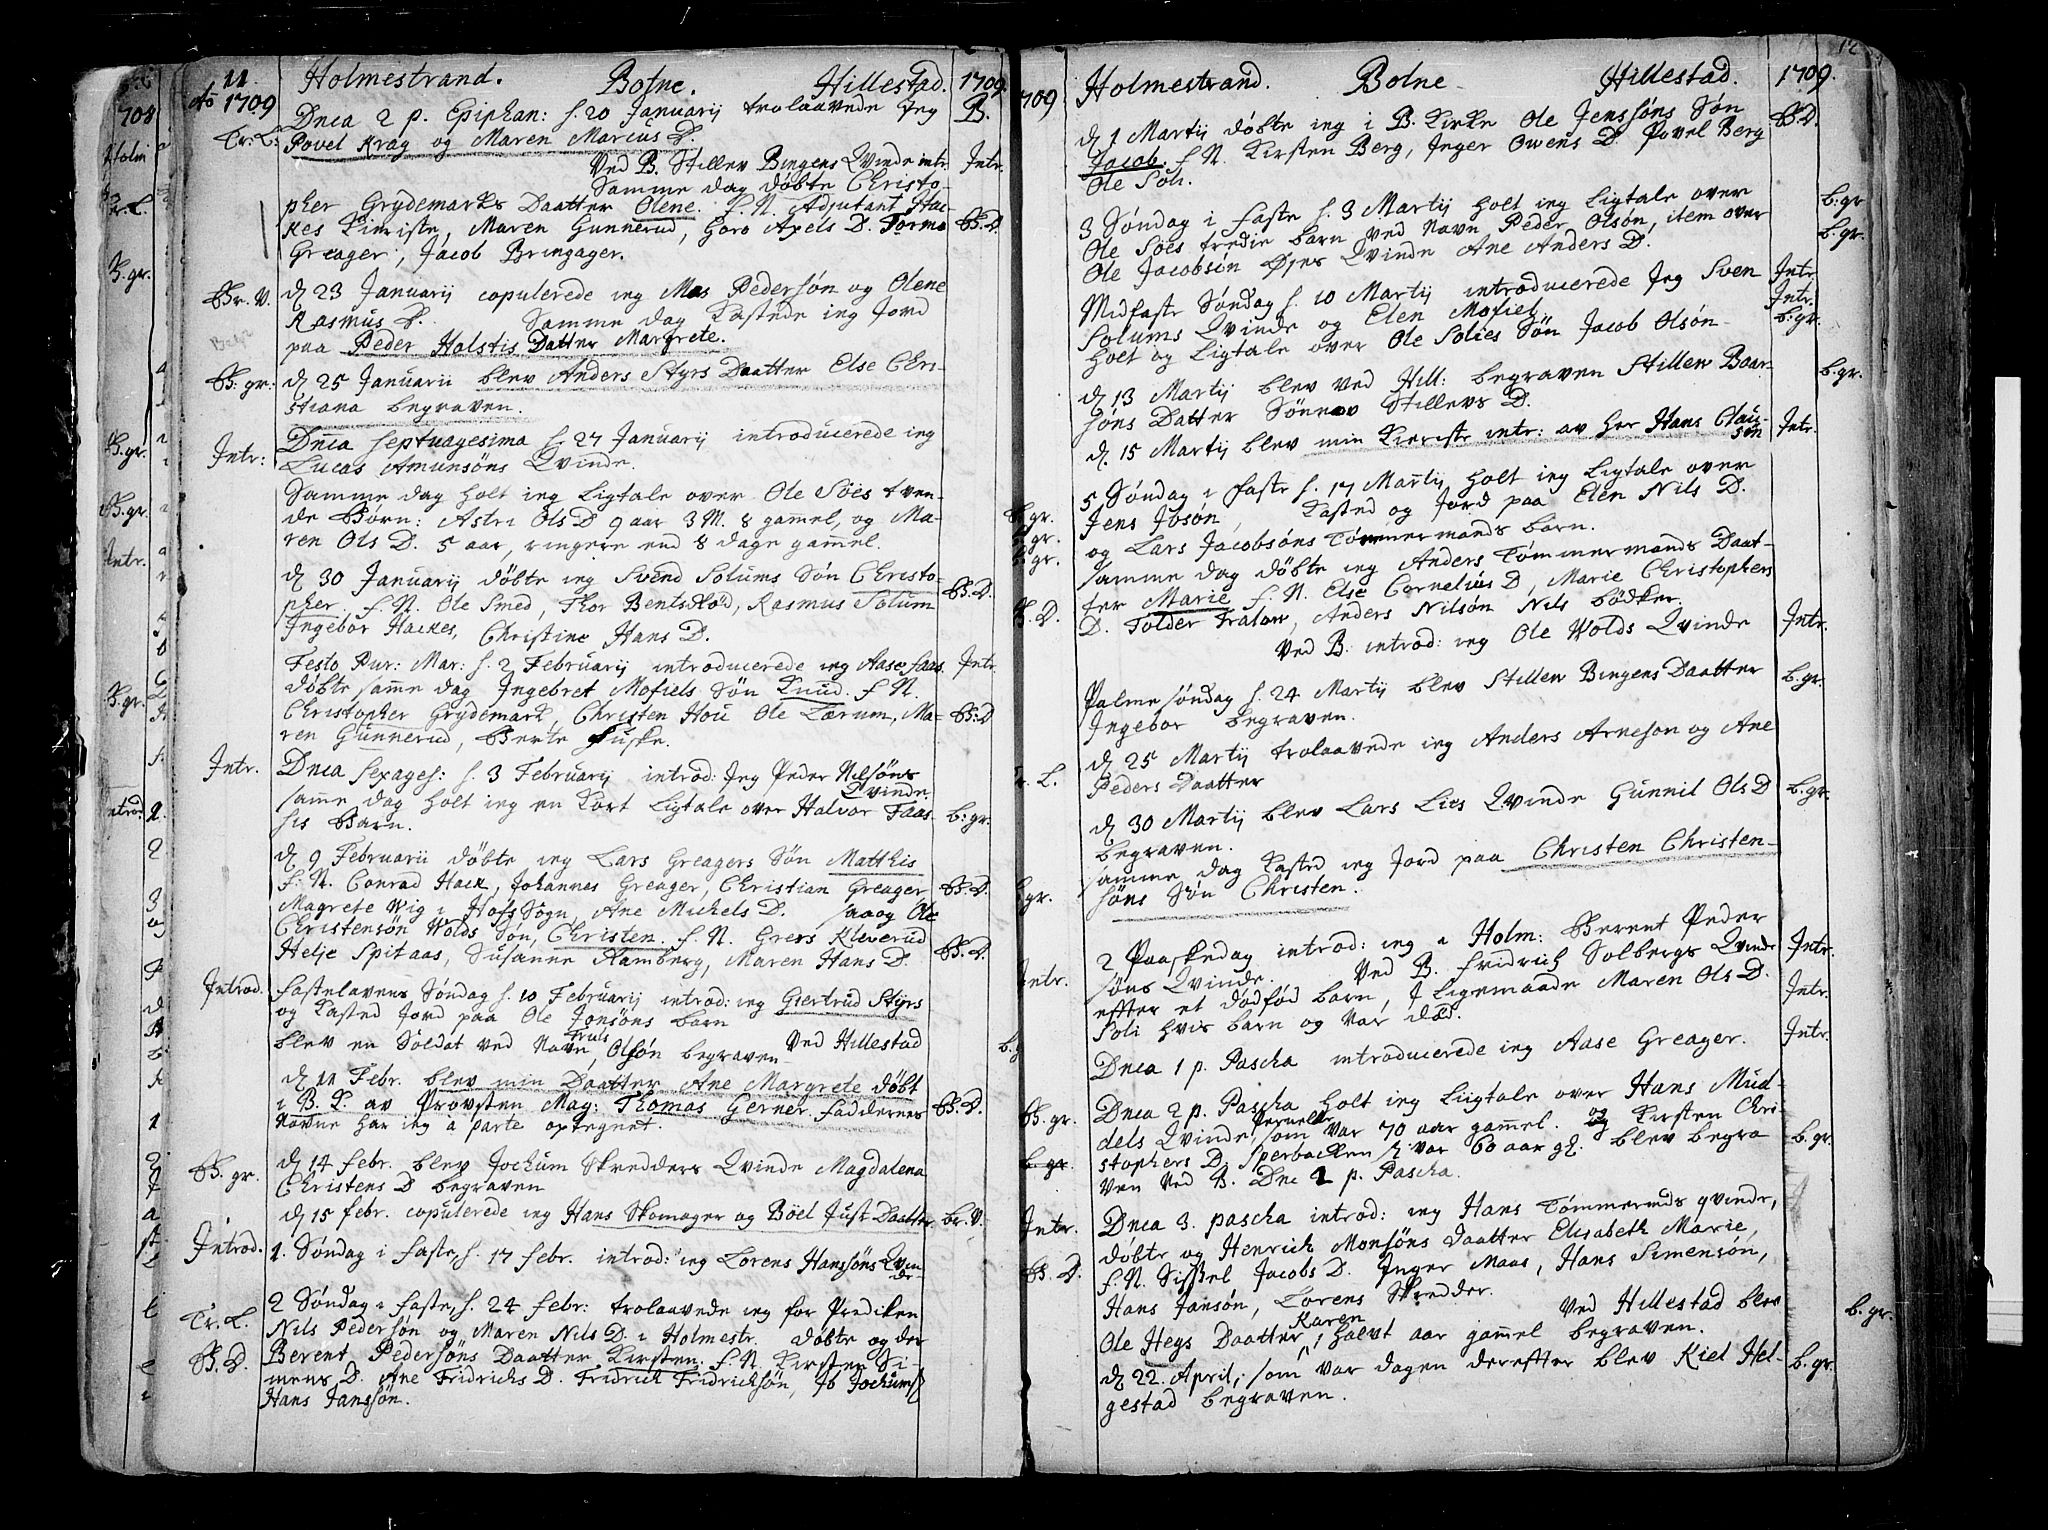 11
Holmestrand. Botne. Hillestad. 1709.
Ao 1709
Dnca 2 p. Epiphan: h. 20 Januarij trolaavede Jeg B.
Tr. L. Povel Krag og Maren Marcus D.
Ved B. Stillev Bingens Qvinde intr. Intr.
Samme dag døbte Christo-
pher Grydemarks Daatter Olene. F. N. Adjutant Hac-
kes Kieriste, Maren Gunnerud, Goro Axels D. Tormo B. D.
Greager, Jacob Bringager.
Br. V. d 23 Januarij copulerede ieg Mas Pedersøn og Olene
Rasmus D. Samme dag Kastede ieg Jord
paa Peder Holstis Datter Margrete.
B: gr: d 25 Januarii blev Anders Styrs Daatter Else Chri-
stiana begraven.
Intr: Dnca Septuagesima h. 27 Januarij introducerede ieg
Lucas Amunsøns Qvinde.
Samme dag holt ieg Ligtale over Ole Søes tven-
de Børn: Astri Ols D 9 aar 3 M. 8 gammel, og Ma-
ren Ols D. 5 aar, ringere end 8 dage gammel.
d 30 Januarij døbte ieg Svend Solums Søn Christo- B. D.
pher. F. N. Ole Smed, Thor Bentsrød, Rasmus Solum
Ingebor Hackes, Christine Hans D.
Festo Pur: Mar: h. 2 Februarij introducerede ieg Aase Saas. Intr
døbte samme dag Ingebret Mofiels Søn Knud. F. N.
Christopher Grydemark, Christen Hou Ole Lærum, Ma- B: D
ren Gunnerud, Berte Huske.
Intr. Dnca Sexages: h. 3 Februarij introd: Jeg Peder Nilsøns
Qvinde
samme dag holt ieg en Kort Ligtale over Halvor Faas- b: gr:
sis Barn.
d 9 Februarii døbte ieg Lars Greagers Søn Matthis
F. N. Conrad Hack, Johannes Greager, Christian Greager B. D.
Magrete Wig i Hofs Sogn, Ane Michels D. saaog Ole
Christensøn Wolds Søn, Christen. F. N. Grers Kleverud
Helje Spitaas, Susanne Ramberg, Maren Hans D. B. D.
Introd. Fastelavens Søndag h. 10 Februarij introd: ieg Giertrud Styrs
og Kasted Jord paa Ole Jonsøns barn Ved Hillestad
blev en Soldat ved Navn Truls Olsøn begraven
d 11 Febr. blev min Daatter Ane Margrete døbt
i B. K. av Provsten Mag: Thomas Gerner. Faddernes B. D.
Navne har ieg a parte optegnet.
B. gr. d 14 febr. blev Jochum Skredders Qvinde Magdalena
Christens D begraven
d 15 febr. copulerede ieg Hans Skomager og Boel Just Daatter. br. V.
Introd. 1. Søndag i faste, h. 17 febr. introd: ieg Lorens Hanssøns Qvin
de.
Tr. L. 2 Søndag i faste, h. 24 febr: trolaavede ieg for Prediken
Nils Pedersøn og Maren Nils D. i Holmestr. døbte og der
B. D. Berent Pedersøns Daatter Kirsten. F. N. Kirsten Si-
mens D. Ane Fridrichs D. Fridrich Fridricksøn, Ib Jochums
Hans Janssøn.
12
1709 Holmestrand. Botne. Hillestad. 1709.
d 1 Martij døbte ieg i B. Kirke Ole Jenssøns Søn B D.
Jacob. F. N. Kirsten Berg, Inger Owens D. Povel Berg
Ole Soli.
3 Søndag i faste h. 3 Martij holt ieg Ligtale over b. gr
Ole Søes tredie barn ved Navn Peder Olsøn, item over b. gr.
Ole Jacobsøn Øjes Qvinde Ane Anders D.
Midfaste Søndag h. 10 Martij introducerede Jeg Sven Intr
Solums Qvinde og Elen Mofiel. Intr.
holt og Ligtale over Ole Solies Søn Jacob Olsøn b: gr.
d 13 Martij blev ved Hill: begraven Stillew Baar- b. gr.
søns Datter Sønnov Stillevs D.
d. 15 Martij blev min Kieriste intr: av Her Hans Clau- Intr.
søn
5 Søndag i faste h. 17 Martij holt ieg Ligtale over
B. gr. Jens Ibsøn, Kasted og Jord paa Elen Nils D.
gr. og Lars Jacobsøns Tømmermands barn.
gr. samme dag døbte ieg Anders Tømmermands Daat-
ter Marie F. N. Else Cornelius D, Marie Christophers
B. D. D. Tolder Tralow, Anders Nilsøn Nils bødker.
Ved B. introd: ieg Ole Wolds Qvinde Intr.
Palme søndag h. 24 Martij blev Stillew Bingens Daatter b. gr.
Ingebor begraven.
d 25 Martij trolaavede ieg Anders Arneson og Ane
Tr. L. Peders Daatter
d 30 Martij blev Lars Lies Qvinde Gunnil Ols D b. gr.
begraven.
samme dag Kasted ieg Jord paa Christen Christen-
gr. søns Søn Christen.
2 Paaskedag introd: ieg i Holm: Berent Peder Intr.
Intr. søns Qvinde. Ved B. fridrich Solbergs Qvinde
effter et dødfød barn, I Ligemaade Maren Ols D. Intr.
Soli hvis barn og var død.
b. g Dnca 1 p. Pascha introducerede ieg Aase Greager. Intr.
B. gr. Dnca 2 p. Pascha holt ieg Liigtale over Hans Mud-
dels Qvinde, Pernelle som var 70 aar gammel. og Kirsten Chri-
b. gr. stophers D. Sperbacken h. var 60 aar gl. blev begra b. gr.
ven ved B. Dnc 2 p. Pascha.
Intr. Dnca 3. pascha introd: ieg Hans Tømmeruds qvinde,
døbte og Henrich Monsøns Daatter Elisabeth Marie,
B. D. F. N. Sissel Jacobs D. Inger Maas, Hans Simensøn,
Hans Jansøn, Lorens Skredder. Ved Hillestad blev b. gr.
Ole Hegs Daatter, Karen halvt aar gammel begraven.
d 22. April, som var dagen dereffter blev Kiel Hel- b. gr.
gestad begraven.